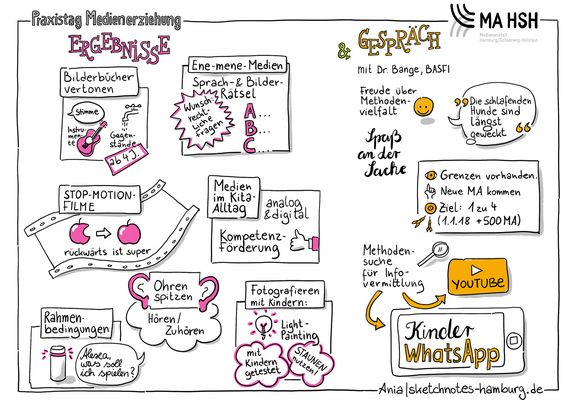 Praxistag Medienerziehung
ERGEBNISSE
Bilderbücher
vertonen
Stimme
Instru-
mente
Gegen-
stände
ab 4 J.
Ene-mene-Medien
Sprach- & Bilder-
Rätsel
Wunsch:
recht-
liche
Fragen
A
B...
C...
STOP-MOTION-
FILME
rückwärts ist super
Medien
im Kita-
Alltag
analog
& digital
Kompetenz-
förderung
Ohren
spitzen
Hören/
Zuhören
Rahmen-
bedingungen
Alexa,
was soll
ich spielen?
Fotografieren
mit Kindern:
Light-
Painting
mit
Kindern
getestet
STAUNEN
nutzen!
& GESPRÄCH
mit Dr. Bange, BASFI
MA HSH
Medienanstalt
Hamburg/Schleswig-Holstein
Freude über
Methoden-
vielfalt
"Die schlafenden
Hunde sind
längst
geweckt"
Spaß
an der
Sache
Grenzen vorhanden.
Neue MA kommen
Ziel: 1 zu 4
(1.1.18 +500 MA)
Methoden-
suche
für Info-
vermittlung
YOUTUBE
Kinder
WhatsApp
Ania|sketchnotes-hamburg.de